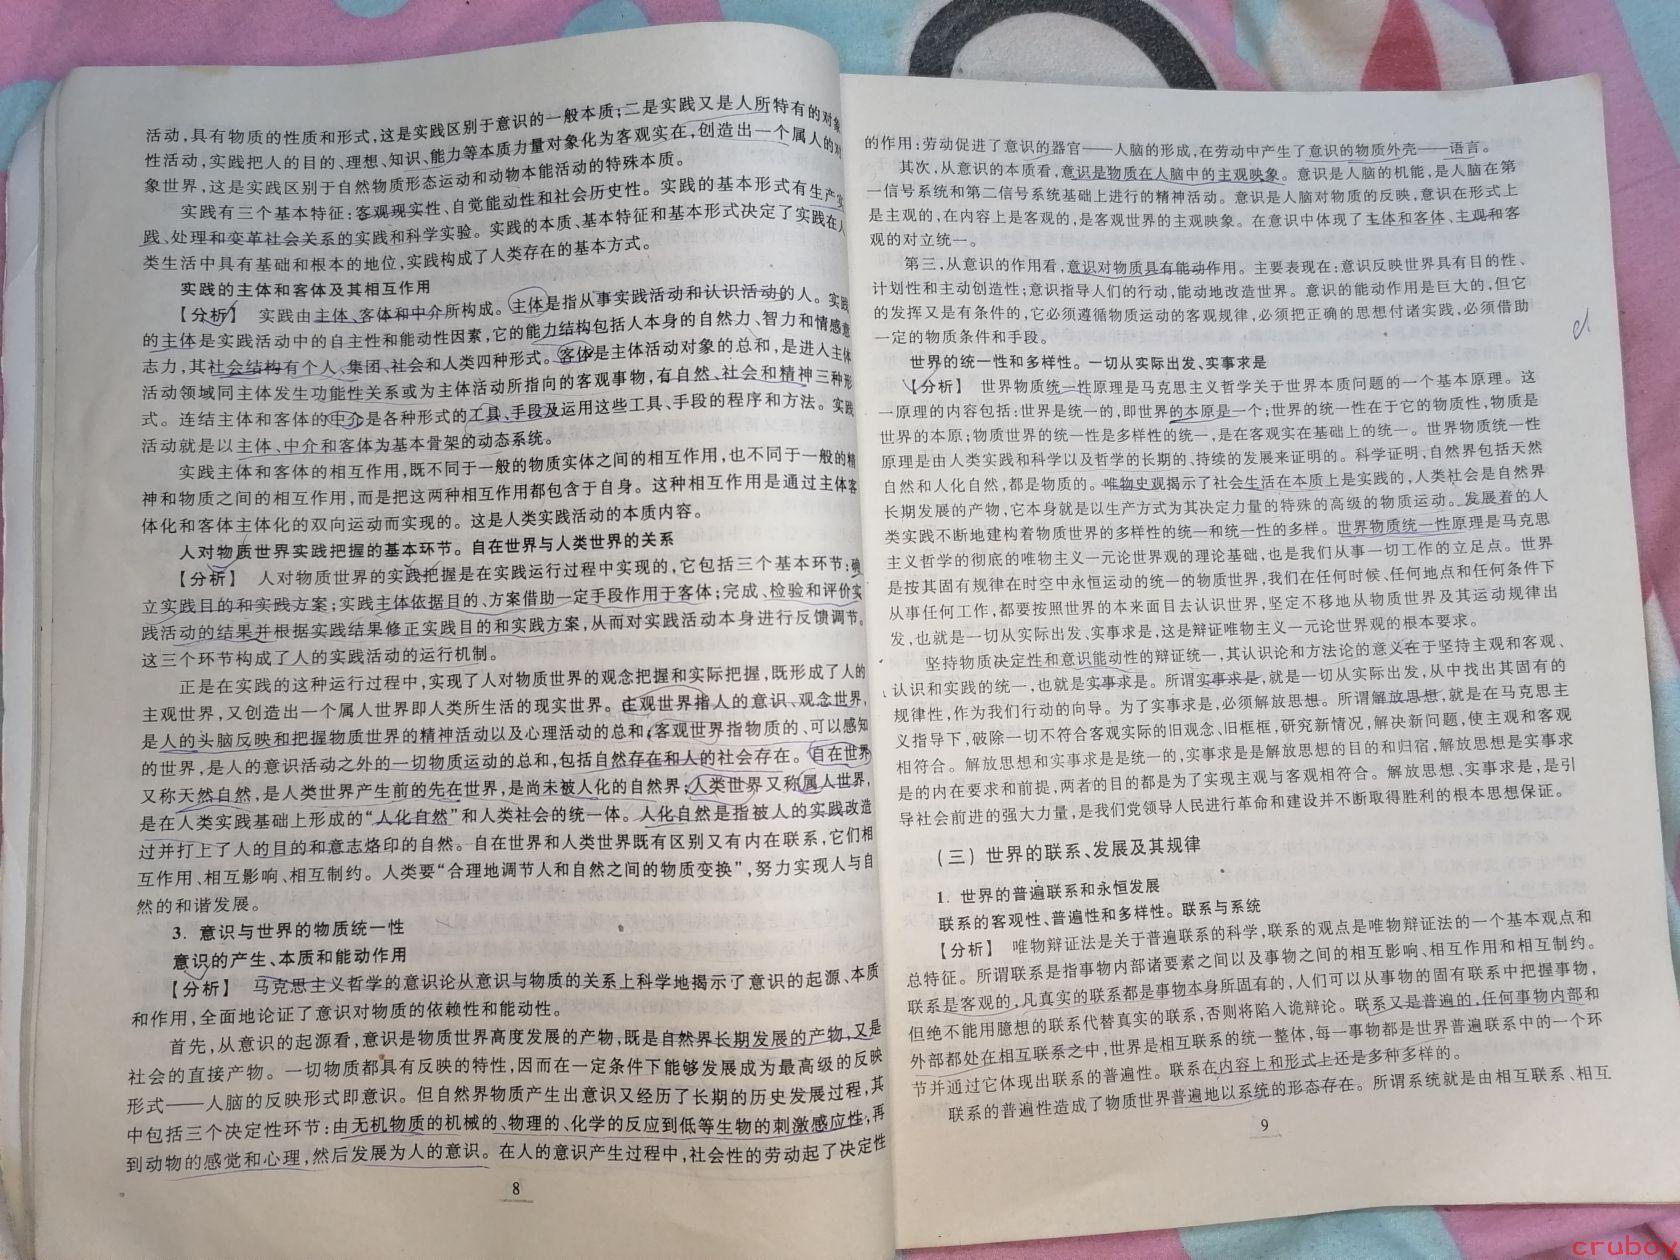 活动,具有物质的性质和形式,这是实践区别于意识的一般本质;二是实践又是人所特有的对象
性活动,实践把人的目的、理想、知识、能力等本质力量对象化为客观实在,创造出一个属人的对
象世界,这是实践区别于自然物质形态运动和动物本能活动的特殊本质。
实践有三个基本特征:客观现实性、自觉能动性和社会历史性。实践的基本形式有生产实
践、处理和变革社会关系的实践和科学实验。实践的本质、基本特征和基本形式决定了实践在人
类生活中具有基础和根本的地位,实践构成了人类存在的基本方式。
实践的主体和客体及其相互作用
【分析】 实践由主体、客体和中介所构成。主体是指从事实践活动和认识活动的人。实践
的主体是实践活动中的自主性和能动性因素,它的能力结构包括人本身的自然力、智力和情感意
志力,其社会结构有个人、集团、社会和人类四种形式。客体是主体活动对象的总和,是进人主体
活动领域同主体发生功能性关系或为主体活动所指向的客观事物,有自然、社会和精神三种形
式。连结主体和客体的中介是各种形式的工具、手段及运用这些工具、手段的程序和方法。实践
活动就是以主体、中介和客体为基本骨架的动态系统。
实践主体和客体的相互作用,既不同于一般的物质实体之间的相互作用,也不同于一般的精
神和物质之间的相互作用,而是把这两种相互作用都包含于自身。这种相互作用是通过主体客
体化和客体主体化的双向运动而实现的。这是人类实践活动的本质内容。
人对物质世界实践把握的基本环节。自在世界与人类世界的关系
【分析】 人对物质世界的实践把握是在实践运行过程中实现的,它包括三个基本环节:确
立实践目的和实践方案;实践主体依据目的、方案借助一定手段作用于客体;完成、检验和评价实
践活动的结果并根据实践结果修正实践目的和实践方案,从而对实践活动本身进行反馈调节。
这三个环节构成了人的实践活动的运行机制。
正是在实践的这种运行过程中,实现了人对物质世界的观念把握和实际把握,既形成了人的
主观世界,又创造出一个属人世界即人类所生活的现实世界。主观世界指人的意识、观念世界,
是人的头脑反映和把握物质世界的精神活动以及心理活动的总和;客观世界指物质的、可以感知
的世界,是人的意识活动之外的一切物质运动的总和,包括自然存在和人的社会存在。自在世界
又称天然自然,是人类世界产生前的先在世界,是尚未被人化的自然界;人类世界又称属人世界,
是在人类实践基础上形成的“人化自然”和人类社会的统一体。人化自然是指被人的实践改造
过并打上了人的目的和意志烙印的自然。自在世界和人类世界既有区别又有内在联系,它们相
互作用、相互影响、相互制约。人类要“合理地调节人和自然之间的物质变换”,努力实现人与自
然的和谐发展。
3. 意识与世界的物质统一性
意识的产生、本质和能动作用
【分析】 马克思主义哲学的意识论从意识与物质的关系上科学地揭示了意识的起源、本质
和作用,全面地论证了意识对物质的依赖性和能动性。
首先,从意识的起源看,意识是物质世界高度发展的产物,既是自然界长期发展的产物,又是
社会的直接产物。一切物质都具有反映的特性,因而在一定条件下能够发展成为最高级的反映
形式——人脑的反映形式即意识。但自然界物质产生出意识又经历了长期的历史发展过程,其
中包括三个决定性环节:由无机物质的机械的、物理的、化学的反应到低等生物的刺激感应性,再
到动物的感觉和心理,然后发展为人的意识。在人的意识产生过程中,社会性的劳动起了决定性
8
的作用:劳动促进了意识的器官——人脑的形成,在劳动中产生了意识的物质外壳——语言。
其次,从意识的本质看,意识是物质在人脑中的主观映象。意识是人脑的机能,是人脑在第
一信号系统和第二信号系统基础上进行的精神活动。意识是人脑对物质的反映,意识在形式上
是主观的,在内容上是客观的,是客观世界的主观映象。在意识中体现了主体和客体、主观和客
观的对立统一。
第三,从意识的作用看,意识对物质具有能动作用。主要表现在:意识反映世界具有目的性、
计划性和主动创造性;意识指导人们的行动,能动地改造世界。意识的能动作用是巨大的,但它
的发挥又是有条件的,它必须遵循物质运动的客观规律,必须把正确的思想付诸实践,必须借助
一定的物质条件和手段。
世界的统一性和多样性。一切从实际出发、实事求是
【分析】 世界物质统一性原理是马克思主义哲学关于世界本质问题的一个基本原理。这
一原理的内容包括:世界是统一的,即世界的本原是一个;世界的统一性在于它的物质性,物质是
世界的本原;物质世界的统一性是多样性的统一,是在客观实在基础上的统一。世界物质统一性
原理是由人类实践和科学以及哲学的长期的、持续的发展来证明的。科学证明,自然界包括天然
自然和人化自然,都是物质的。唯物史观揭示了社会生活在本质上是实践的,人类社会是自然界
长期发展的产物,它本身就是以生产方式为其决定力量的特殊的高级的物质运动。发展着的人
类实践不断地建构着物质世界的多样性的统一和统一性的多样。世界物质统一性原理是马克思
主义哲学的彻底的唯物主义一元论世界观的理论基础,也是我们从事一切工作的立足点。世界
是按其固有规律在时空中永恒运动的统一的物质世界,我们在任何时候、任何地点和任何条件下
从事任何工作,都要按照世界的本来面目去认识世界,坚定不移地从物质世界及其运动规律出
发,也就是一切从实际出发、实事求是,这是辩证唯物主义一元论世界观的根本要求。
坚持物质决定性和意识能动性的辩证统一,其认识论和方法论的意义在于坚持主观和客观、
认识和实践的统一,也就是实事求是。所谓实事求是,就是一切从实际出发,从中找出其固有的
规律性,作为我们行动的向导。为了实事求是,必须解放思想。所谓解放思想,就是在马克思主
义指导下,破除一切不符合客观实际的旧观念、旧框框,研究新情况,解决新问题,使主观和客观
相符合。解放思想和实事求是是统一的,实事求是是解放思想的目的和归宿,解放思想是实事求
是的内在要求和前提,两者的目的都是为了实现主观与客观相符合。解放思想、实事求是,是引
导社会前进的强大力量,是我们党领导人民进行革命和建设并不断取得胜利的根本思想保证。
(三) 世界的联系、发展及其规律
1. 世界的普遍联系和永恒发展
联系的客观性、普遍性和多样性。联系与系统
【分析】 唯物辩证法是关于普遍联系的科学,联系的观点是唯物辩证法的一个基本观点和
总特征。所谓联系是指事物内部诸要素之间以及事物之间的相互影响、相互作用和相互制约。
联系是客观的,凡真实的联系都是事物本身所固有的,人们可以从事物的固有联系中把握事物,
但绝不能用臆想的联系代替真实的联系,否则将陷人诡辩论。联系又是普遍的,任何事物内部和
外部都处在相互联系之中,世界是相互联系的统一整体,每一事物都是世界普遍联系中的一个环
节并通过它体现出联系的普遍性。联系在内容上和形式上还是多种多样的。
联系的普遍性造成了物质世界普遍地以系统的形态存在。所谓系统就是由相互联系、相互
9
crubox